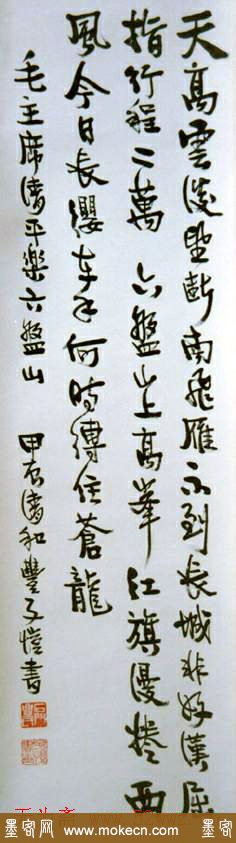 天高雲淡望斷南飛雁不到長城非好漢屈
指行程二萬六盤山上高峯紅旗漫捲西
風今日長纓在手何時縛住蒼龍
毛主席清平樂六盤山 甲辰清和豐子愷書
墨客网 www.mokecn.com 墨客网